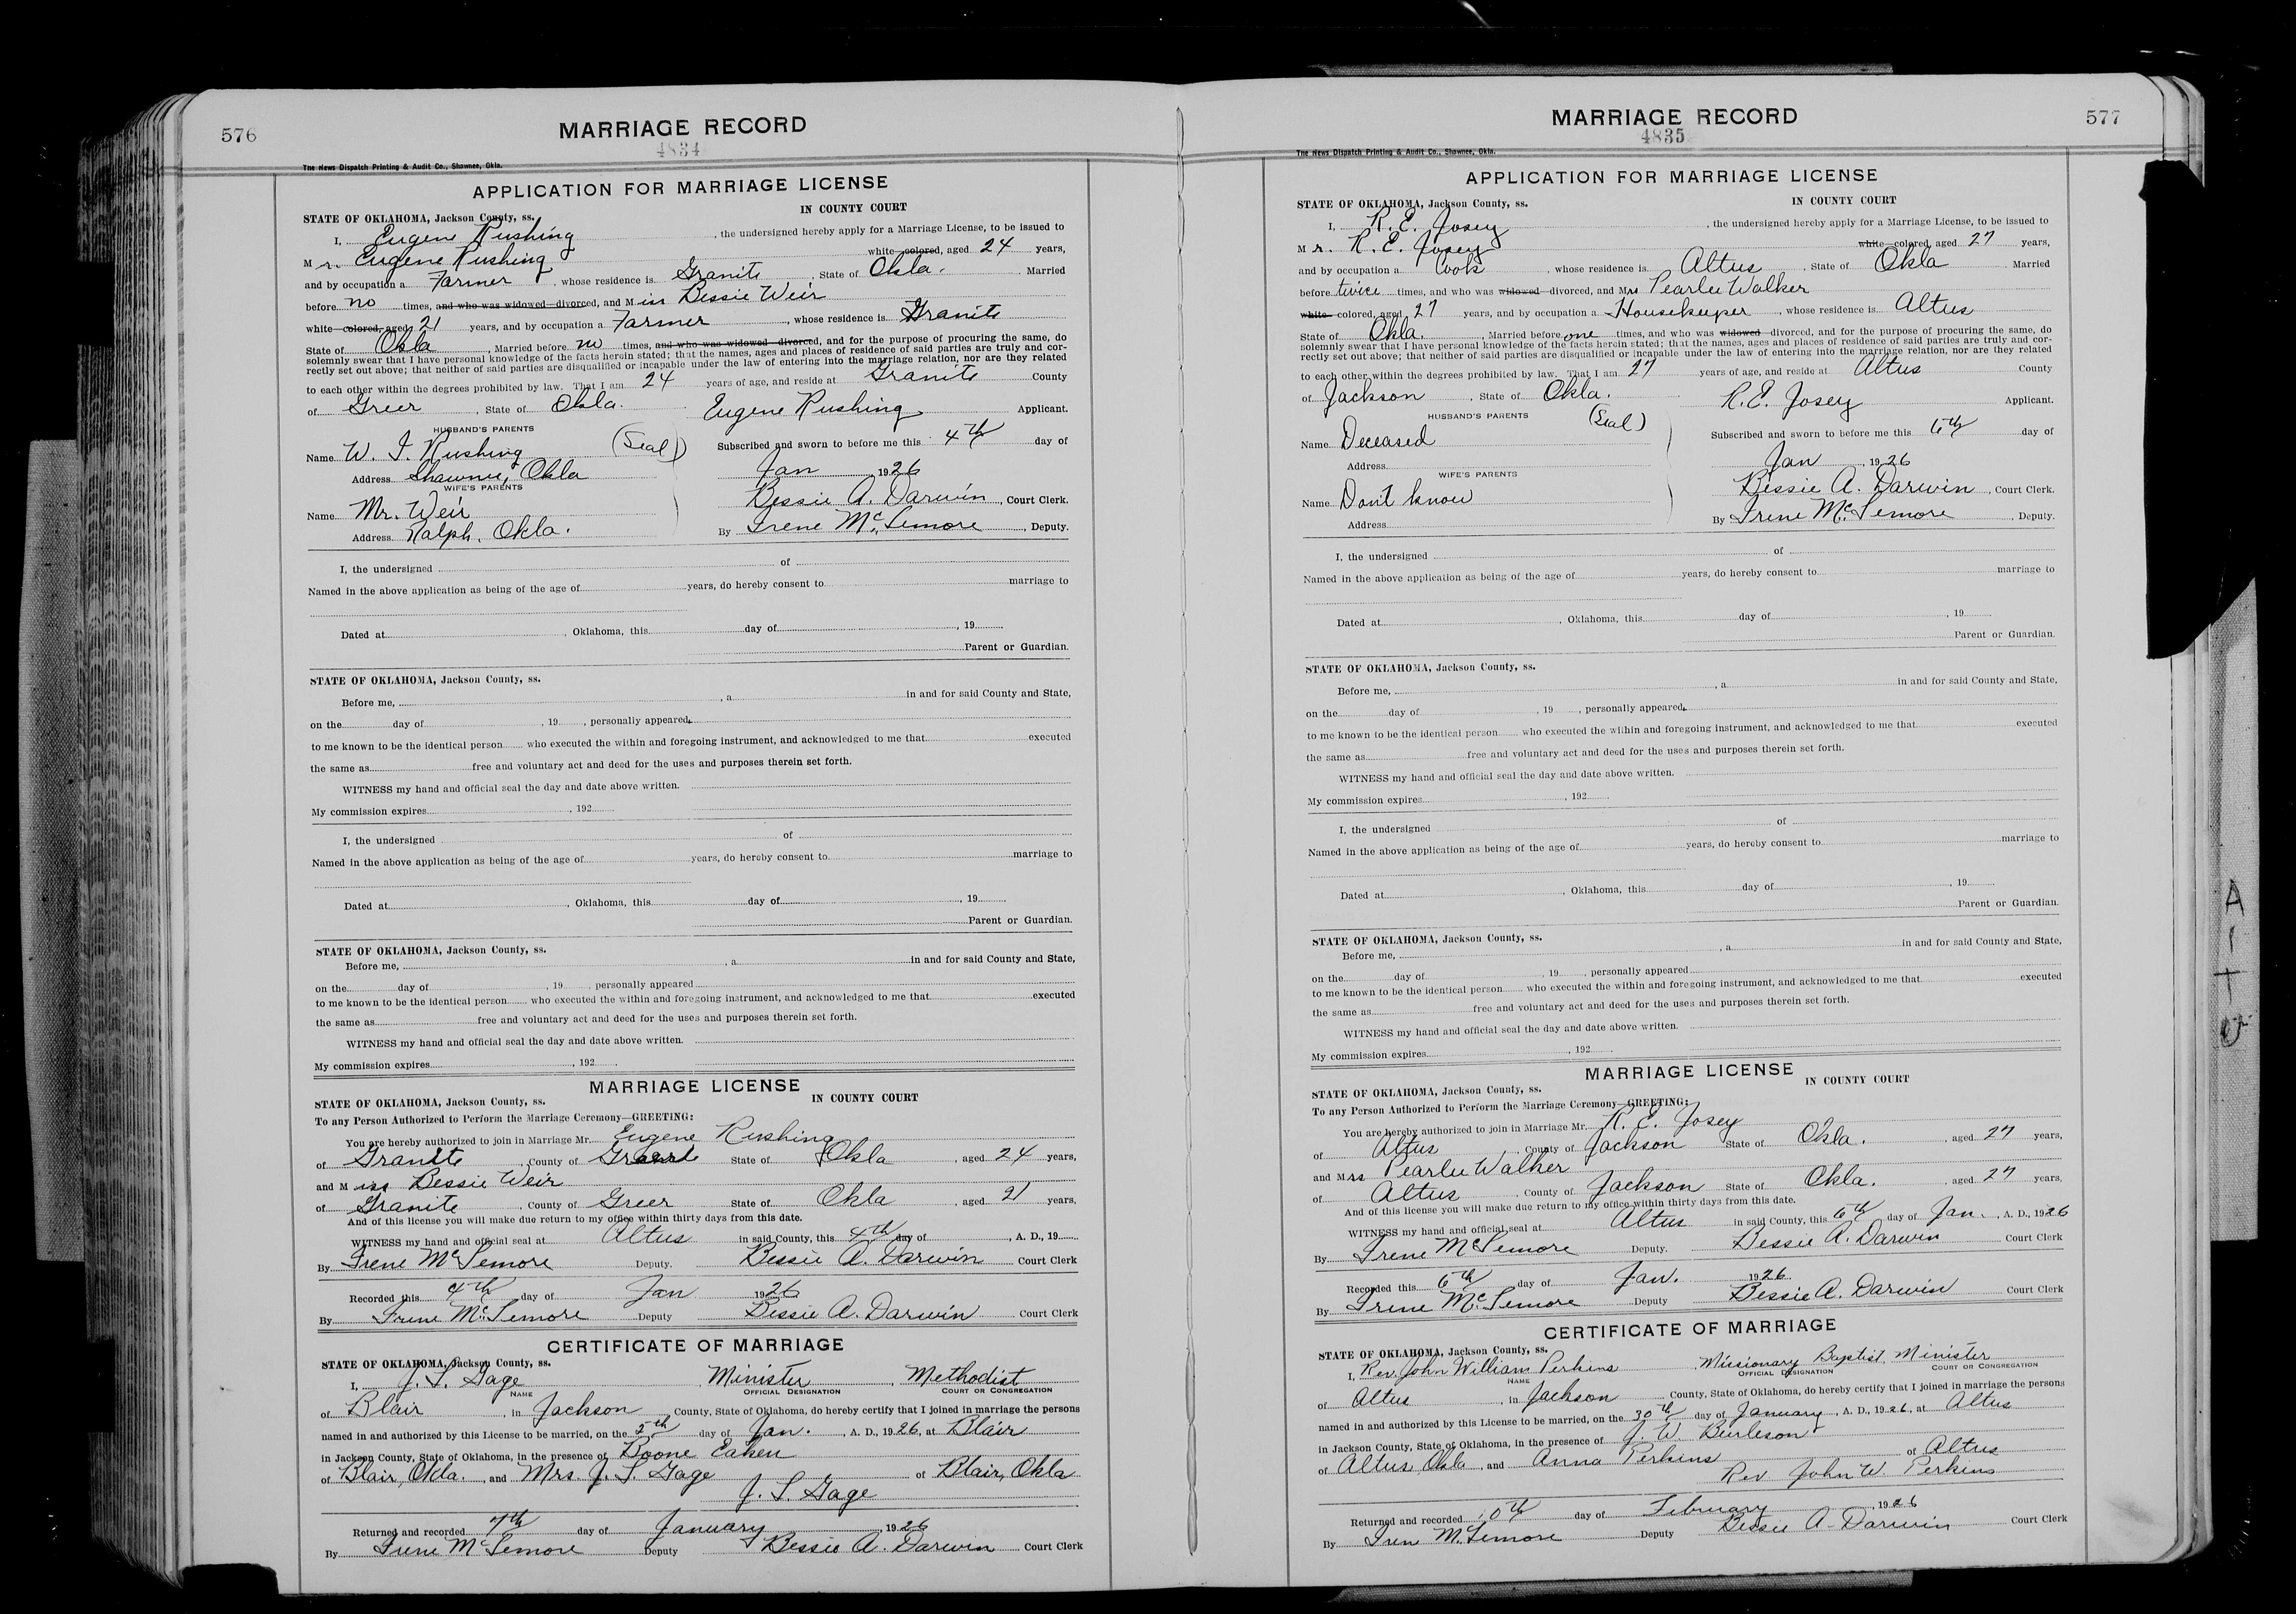 576
MARRIAGE RECORD
4834
The News Dispatch Printing & Audit Co., Shawnee, Okla.
APPLICATION FOR MARRIAGE LICENSE
STATE OF OKLAHOMA, Jackson County, ss. IN COUNTY COURT
I, Eugene Rushing, the undersigned hereby apply for a Marriage License, to be issued to
Mr. Eugene Rushing white colored, aged 24 years,
and by occupation a Farmer, whose residence is Granite, State of Okla. Married
before no times, and who was widowed—divorced, and Miss Bessie Weir
white colored, aged 21 years, and by occupation a Farmer, whose residence is Granite
State of Okla, Married before no times, and who was widowed—divorced, and for the purpose of procuring the same, do
solemnly swear that I have personal knowledge of the facts herein stated; that the names, ages and places of residence of said parties are truly and cor-
rectly set out above; that neither of said parties are disqualified or incapable under the law of entering into the marriage relation, nor are they related
to each other within the degrees prohibited by law. That I am 24 years of age, and reside at Granite County
of Greer, State of Okla. Eugene Rushing Applicant.
HUSBAND'S PARENTS
Name W. I. Rushing (Seal) Subscribed and sworn to before me this 4th day of
Address Shawnee, Okla Jan 1926
WIFE'S PARENTS
Name Mr. Weir Bessie A. Darwin, Court Clerk.
Address Ralph, Okla. By Irene McLemore, Deputy.
I, the undersigned of
Named in the above application as being of the age of years, do hereby consent to marriage to
Dated at, Oklahoma, this day of, 19
Parent or Guardian.
STATE OF OKLAHOMA, Jackson County, ss.
Before me, , a in and for said County and State,
on the day of, 19, personally appeared,
to me known to be the identical person who executed the within and foregoing instrument, and acknowledged to me that executed
the same as free and voluntary act and deed for the uses and purposes therein set forth.
WITNESS my hand and official seal the day and date above written.
My commission expires, 192
I, the undersigned of
Named in the above application as being of the age of years, do hereby consent to marriage to
Dated at, Oklahoma, this day of, 19
Parent or Guardian.
STATE OF OKLAHOMA, Jackson County, ss.
Before me, , a in and for said County and State,
on the day of, 19, personally appeared
to me known to be the identical person who executed the within and foregoing instrument, and acknowledged to me that executed
the same as free and voluntary act and deed for the uses and purposes therein set forth.
WITNESS my hand and official seal the day and date above written.
My commission expires, 192
MARRIAGE LICENSE
STATE OF OKLAHOMA, Jackson County, ss. IN COUNTY COURT
To any Person Authorized to Perform the Marriage Ceremony—GREETING:
You are hereby authorized to join in Marriage Mr. Eugene Rushing
of Granite, County of State of Okla, aged 24 years,
and Miss Bessie Weir
of Granite, County of Greer State of Okla, aged 21 years,
And of this license you will make due return to my office within thirty days from this date.
WITNESS my hand and official seal at Altus in said County, this 4th day of, A. D., 19
By Irene McLemore Deputy. Bessie A. Darwin Court Clerk
Recorded this 4th day of Jan 1926
By Irene McLemore Deputy Bessie A. Darwin Court Clerk
CERTIFICATE OF MARRIAGE
STATE OF OKLAHOMA, Jackson County, ss.
I, J. S. Gage Minister, Methodist
NAME OFFICIAL DESIGNATION COURT OR CONGREGATION
of Blair, in Jackson County, State of Oklahoma, do hereby certify that I joined in marriage the persons
named in and authorized by this License to be married, on the 5th day of Jan., A. D., 1926, at Blair
in Jackson County, State of Oklahoma, in the presence of Boone Eaken
of Blair, Okla., and Mrs. J. S. Gage of Blair, Okla
J. S. Gage
Returned and recorded 7th day of January, 1926
By Irene McLemore Deputy Bessie A. Darwin Court Clerk
577
MARRIAGE RECORD
4835
The News Dispatch Printing & Audit Co., Shawnee, Okla.
APPLICATION FOR MARRIAGE LICENSE
STATE OF OKLAHOMA, Jackson County, ss. IN COUNTY COURT
I, R. E. Josey, the undersigned hereby apply for a Marriage License, to be issued to
Mr. R. E. Josey white colored, aged 27 years,
and by occupation a Cook, whose residence is Altus, State of Okla Married
before twice times, and who was widowed—divorced, and Mrs Pearlee Walker
white colored, aged 27 years, and by occupation a Housekeeper, whose residence is Altus
State of Okla., Married before one times, and who was widowed—divorced, and for the purpose of procuring the same, do
solemnly swear that I have personal knowledge of the facts herein stated; that the names, ages and places of residence of said parties are truly and cor-
rectly set out above; that neither of said parties are disqualified or incapable under the law of entering into the marriage relation, nor are they related
to each other within the degrees prohibited by law. That I am 27 years of age, and reside at Altus County
of Jackson, State of Okla. R. E. Josey Applicant.
HUSBAND'S PARENTS
Name Deceased (Seal) Subscribed and sworn to before me this 6th day of
Address Jan, 1926
WIFE'S PARENTS
Name Don't know Bessie A. Darwin, Court Clerk.
Address By Irene McLemore, Deputy.
I, the undersigned of
Named in the above application as being of the age of years, do hereby consent to marriage to
Dated at, Oklahoma, this day of, 19
Parent or Guardian.
STATE OF OKLAHOMA, Jackson County, ss.
Before me, , a in and for said County and State,
on the day of, 19, personally appeared,
to me known to be the identical person who executed the within and foregoing instrument, and acknowledged to me that executed
the same as free and voluntary act and deed for the uses and purposes therein set forth.
WITNESS my hand and official seal the day and date above written.
My commission expires, 192
I, the undersigned of
Named in the above application as being of the age of years, do hereby consent to marriage to
Dated at, Oklahoma, this day of, 19
Parent or Guardian.
STATE OF OKLAHOMA, Jackson County, ss.
Before me, , a in and for said County and State,
on the day of, 19, personally appeared
to me known to be the identical person who executed the within and foregoing instrument, and acknowledged to me that executed
the same as free and voluntary act and deed for the uses and purposes therein set forth.
WITNESS my hand and official seal the day and date above written.
My commission expires, 192
MARRIAGE LICENSE
STATE OF OKLAHOMA, Jackson County, ss. IN COUNTY COURT
To any Person Authorized to Perform the Marriage Ceremony—GREETING:
You are hereby authorized to join in Marriage Mr. R. E. Josey
of Altus, County of Jackson State of Okla., aged 27 years,
and Mrs Pearlee Walker
of Altus, County of Jackson State of Okla., aged 27 years,
And of this license you will make due return to my office within thirty days from this date.
WITNESS my hand and official seal at Altus in said County, this 6th day of Jan., A. D., 1926
By Irene McLemore Deputy. Bessie A. Darwin Court Clerk
Recorded this 6th day of Jan. 1926
By Irene McLemore Deputy Bessie A. Darwin Court Clerk
CERTIFICATE OF MARRIAGE
STATE OF OKLAHOMA, Jackson County, ss.
I, Rev. John William Perkins, Missionary Baptist Minister
NAME OFFICIAL DESIGNATION COURT OR CONGREGATION
of Altus, in Jackson County, State of Oklahoma, do hereby certify that I joined in marriage the persons
named in and authorized by this License to be married, on the 30th day of January, A. D., 1926, at Altus
in Jackson County, State of Oklahoma, in the presence of J. W. Burleson
of Altus Okla, and Anna Perkins of Altus
Rev John W Perkins
Returned and recorded 10th day of February, 1926
By Iren McLemore Deputy Bessie A. Darwin Court Clerk